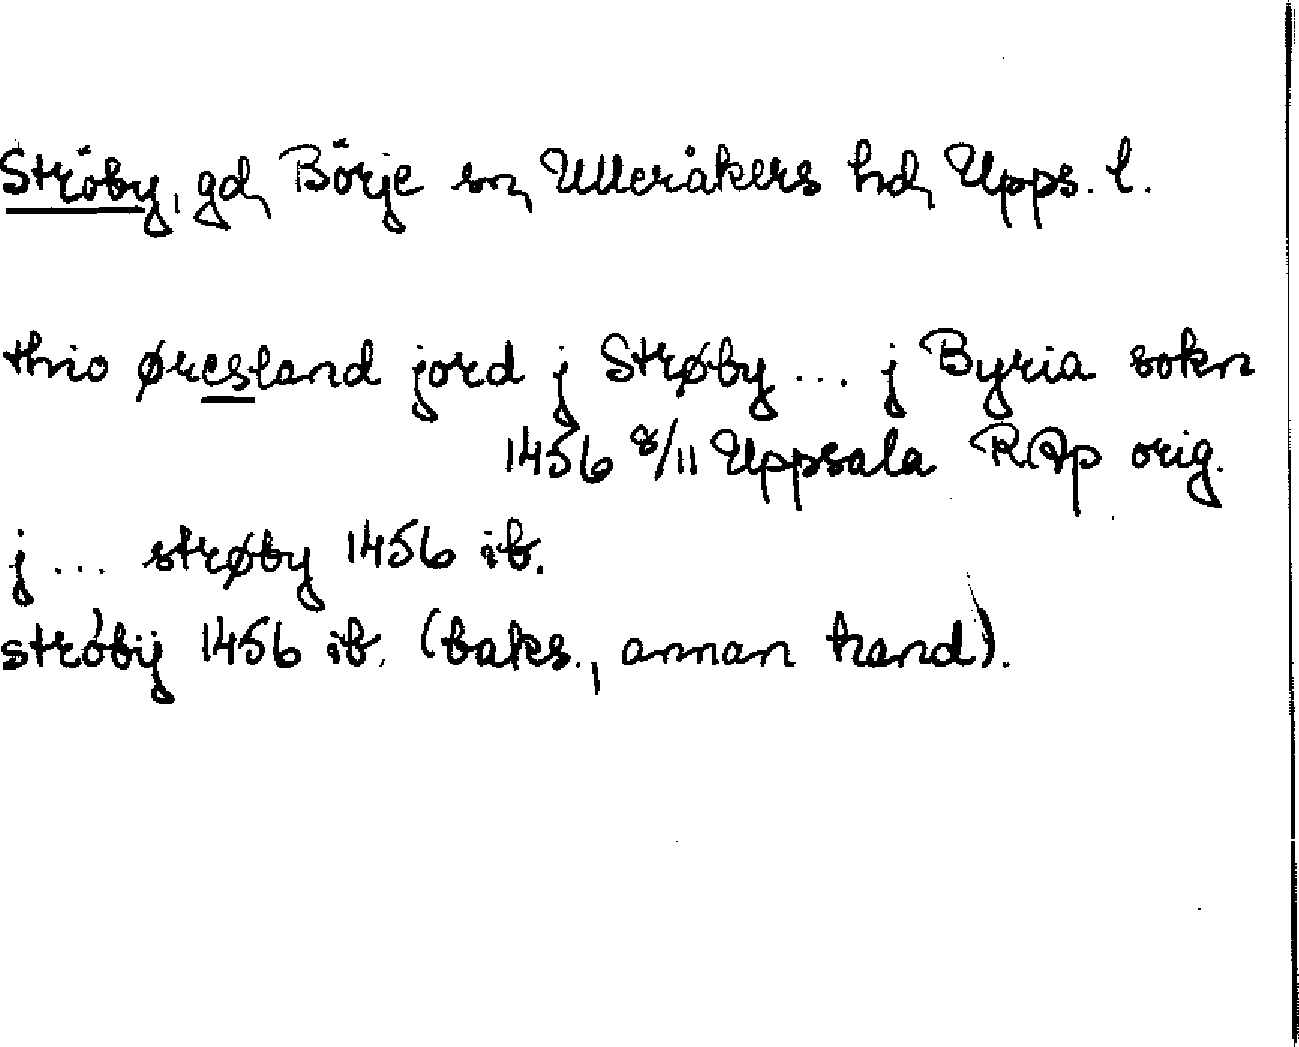 Ströby, gd, Börje sn, Ulleråkers hd, Upps. l.
thrio øresland jord j Strøby ... j Byria sokn
1456 8/11 Uppsala RAp orig.
j ... strøby 1456 ib.
stróbij 1456 ib. (baks., annan hand).